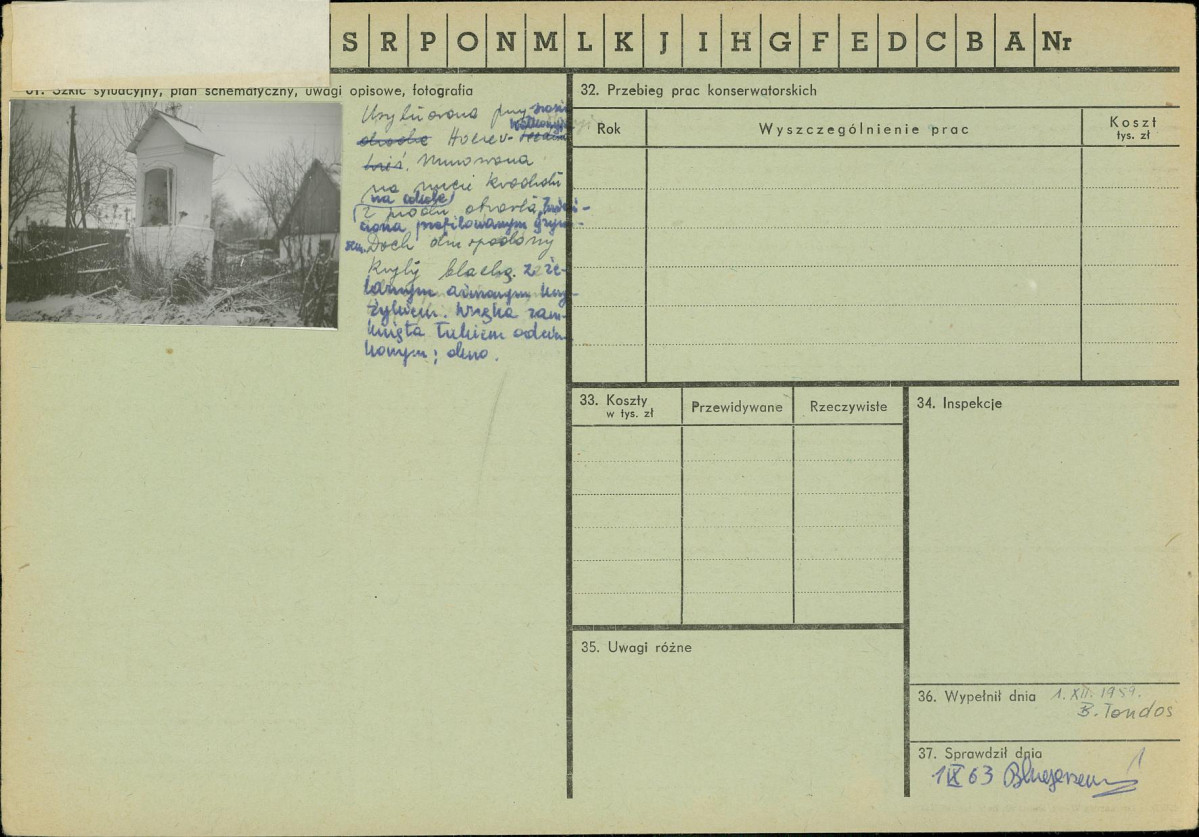 S R P O N M L K J I H G F E D C B A Nr
31. Szkic sytuacyjny, plan schematyczny, uwagi opisowe, fotografia
Murowana
na rucie kwadratu
na cokole
z przodu otwarta, zwień-
czona profilowanym gzym-
sem. Dach dwuspadowy
kryty blachą, z że-
laznym ażurowym krzy-
żykiem. Wnęka zam-
knięta łukiem odcin-
kowym; okno.
32. Przebieg prac konserwatorskich
Rok
Wyszczególnienie prac
Koszt
tys. zł
33. Koszty
w tys. zł
Przewidywane
Rzeczywiste
34. Inspekcje
35. Uwagi różne
36. Wypełnił dnia 1. XII. 1959.
B. Tondos
37. Sprawdził dnia
1 IX 63